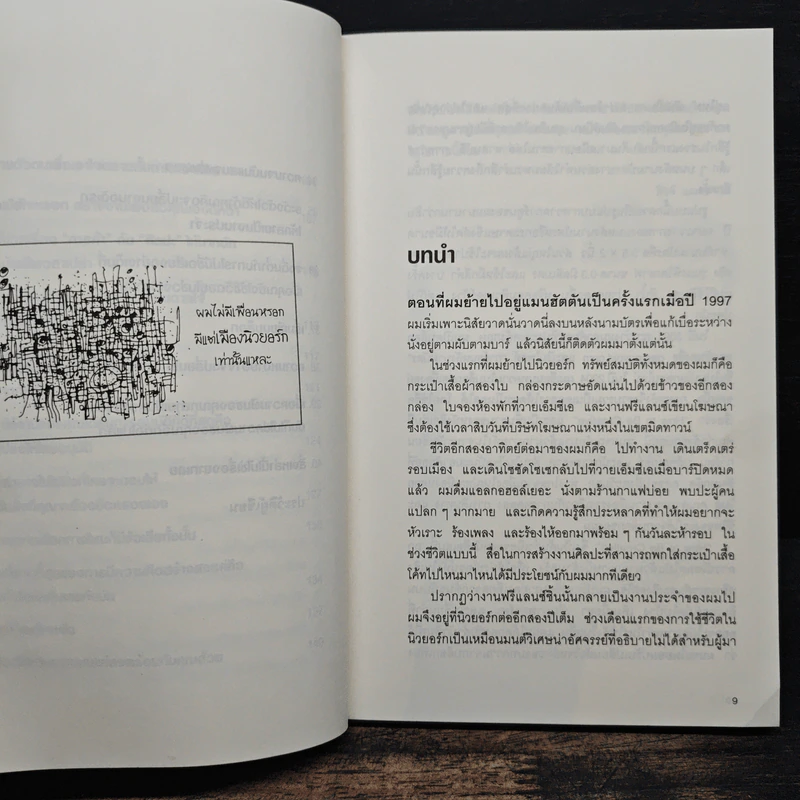 ผมไม่มีเพื่อนหรอก
มีแต่เมืองนิวยอร์ก
เท่านั้นแหละ
บทนำ
ตอนที่ผมย้ายไปอยู่แมนฮัตตันเป็นครั้งแรกเมื่อปี 1997
ผมเริ่มเพาะนิสัยวาดนั่นวาดนี่ลงบนหลังนามบัตรเพื่อแก้เบื่อระหว่าง
นั่งอยู่ตามผับตามบาร์ แล้วนิสัยนี้ก็ติดตัวผมมาตั้งแต่นั้น
ในช่วงแรกที่ผมย้ายไปนิวยอร์ก ทรัพย์สมบัติทั้งหมดของผมก็คือ
กระเป๋าเสื้อผ้าสองใบ กล่องกระดาษอัดแน่นไปด้วยข้าวของอีกสอง
กล่อง ใบจองห้องพักที่วายเอ็มซีเอ และงานฟรีแลนซ์เขียนโฆษณา
ซึ่งต้องใช้เวลาสิบวันที่บริษัทโฆษณาแห่งหนึ่งในเขตมิดทาวน์
ชีวิตอีกสองอาทิตย์ต่อมาของผมก็คือ ไปทำงาน เดินเตร็ดเตร่
รอบเมือง และเดินโซซัดโซเซกลับไปที่วายเอ็มซีเอเมื่อบาร์ปิดหมด
แล้ว ผมดื่มแอลกอฮอล์เยอะ นั่งตามร้านกาแฟบ่อย พบปะผู้คน
แปลก ๆ มากมาย และเกิดความรู้สึกประหลาดที่ทำให้ผมอยากจะ
หัวเราะ ร้องเพลง และร้องไห้ออกมาพร้อม ๆ กันวันละห้ารอบ ใน
ช่วงชีวิตแบบนี้ สื่อในการสร้างงานศิลปะที่สามารถพกใส่กระเป๋าเสื้อ
โค้ทไปไหนมาไหนได้มีประโยชน์กับผมมากทีเดียว
ปรากฏว่างานฟรีแลนซ์ชิ้นนั้นกลายเป็นงานประจำของผมไป
ผมจึงอยู่ที่นิวยอร์กต่ออีกสองปีเต็ม ช่วงเดือนแรกของการใช้ชีวิตใน
นิวยอร์กเป็นเหมือนมนต์วิเศษน่าอัศจรรย์ที่อธิบายไม่ได้สำหรับผู้มา
9